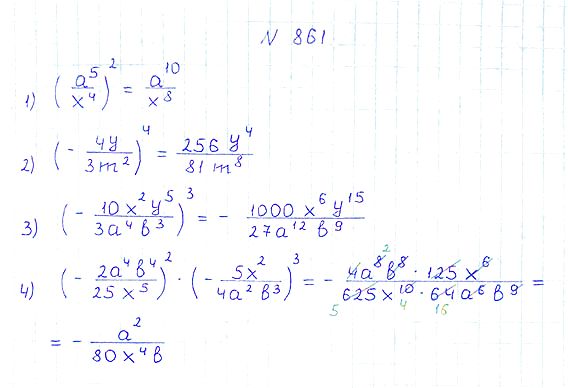 N 861
1) (a⁵/x⁴)² = a¹⁰/x⁸
2) (- 4y/3m²)⁴ = 256 y⁴/81 m⁸
3) (- 10x²y⁵/3a⁴b³)³ = - 1000 x⁶y¹⁵/27a¹² b⁹
4) (- 2a⁴b⁴/25 x⁵)² · (- 5x²/4a²b³)³ = - 4a⁸b⁸ · 125 x⁶/625x¹⁰ · 64a⁶b⁹ =
= - a²/80x⁴b